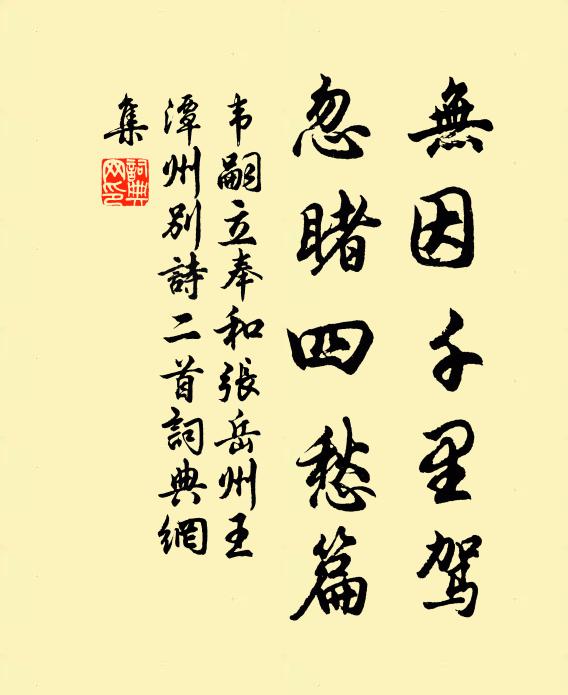 無因千里駕
忽睹四愁篇
韦嗣立奉和張岳州王
潭州别詩二首詞典網
集
詞典
网印